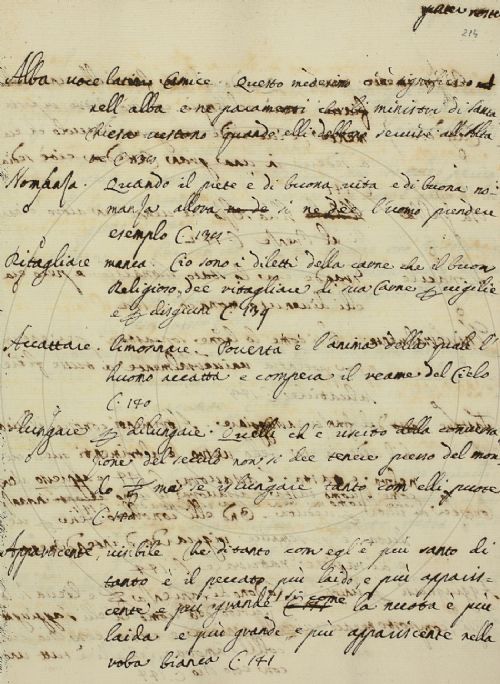 pater noste
214
Alba voce latina Camice. Questo medesimo significato
nell alba e ne paramenti che li ministri di santa
chiesa vestono quando elli debbono servire all'Alta
C. 130
Nomanza. Quando il prete è di buona vita e di buona no-
manza allora si ne dee l'uomo prendere
esemplo C.
Ritagliare manca. Ciò sono i diletti della carne che il buon
Religioso dee ritagliare di sua Carne vigilie
e digiuni C. 139
Accattare. limosinare. Povertà e l'anima della quale l'
huomo accatta e compera il reame del Cielo
C. 140
Allungare dilungare. Quelli ch è uscito della conversa-
zione del secolo non si dee tenere presso del mon-
do ma se n'allungare tanto com elli puote
C.
Appariscente, visibile Che di tanto com egl'è più santo di
tanto è il peccato più laido e più apparis-
cente e più grande si come la macola è più
laida e più grande, e più appariscente nella
roba bianca C. 141